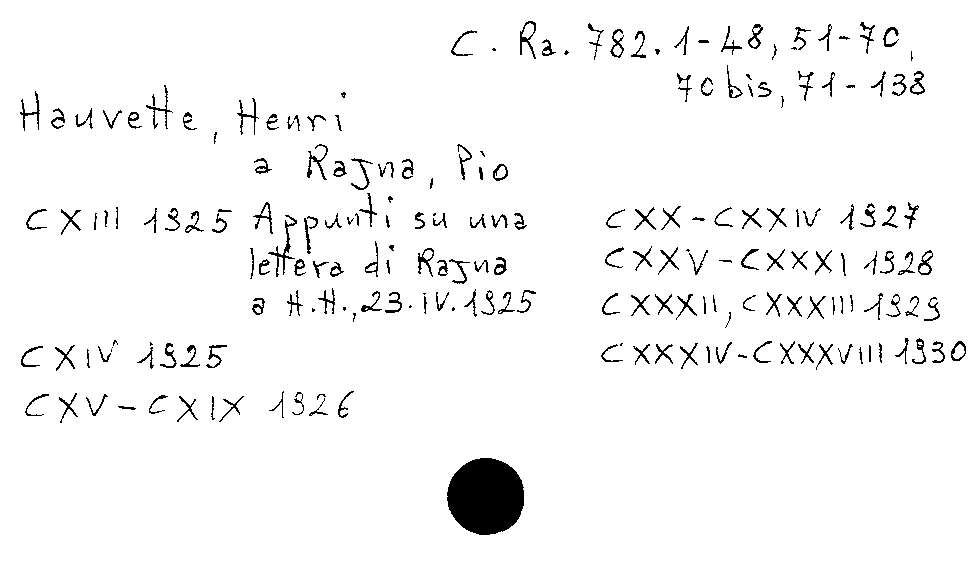 C. Ra. 782. 1-48, 51-70,
70 bis, 71-138
Hauvette, Henri
a Rajna, Pio
CXIII 1925 Appunti su una
lettera di Rajna
a H.H., 23.IV.1925
CXIV 1925
CXV-CXIX 1926
CXX-CXXIV 1927
CXXV-CXXXI 1928
CXXXII, CXXXIII 1929
CXXXIV-CXXXVIII 1930